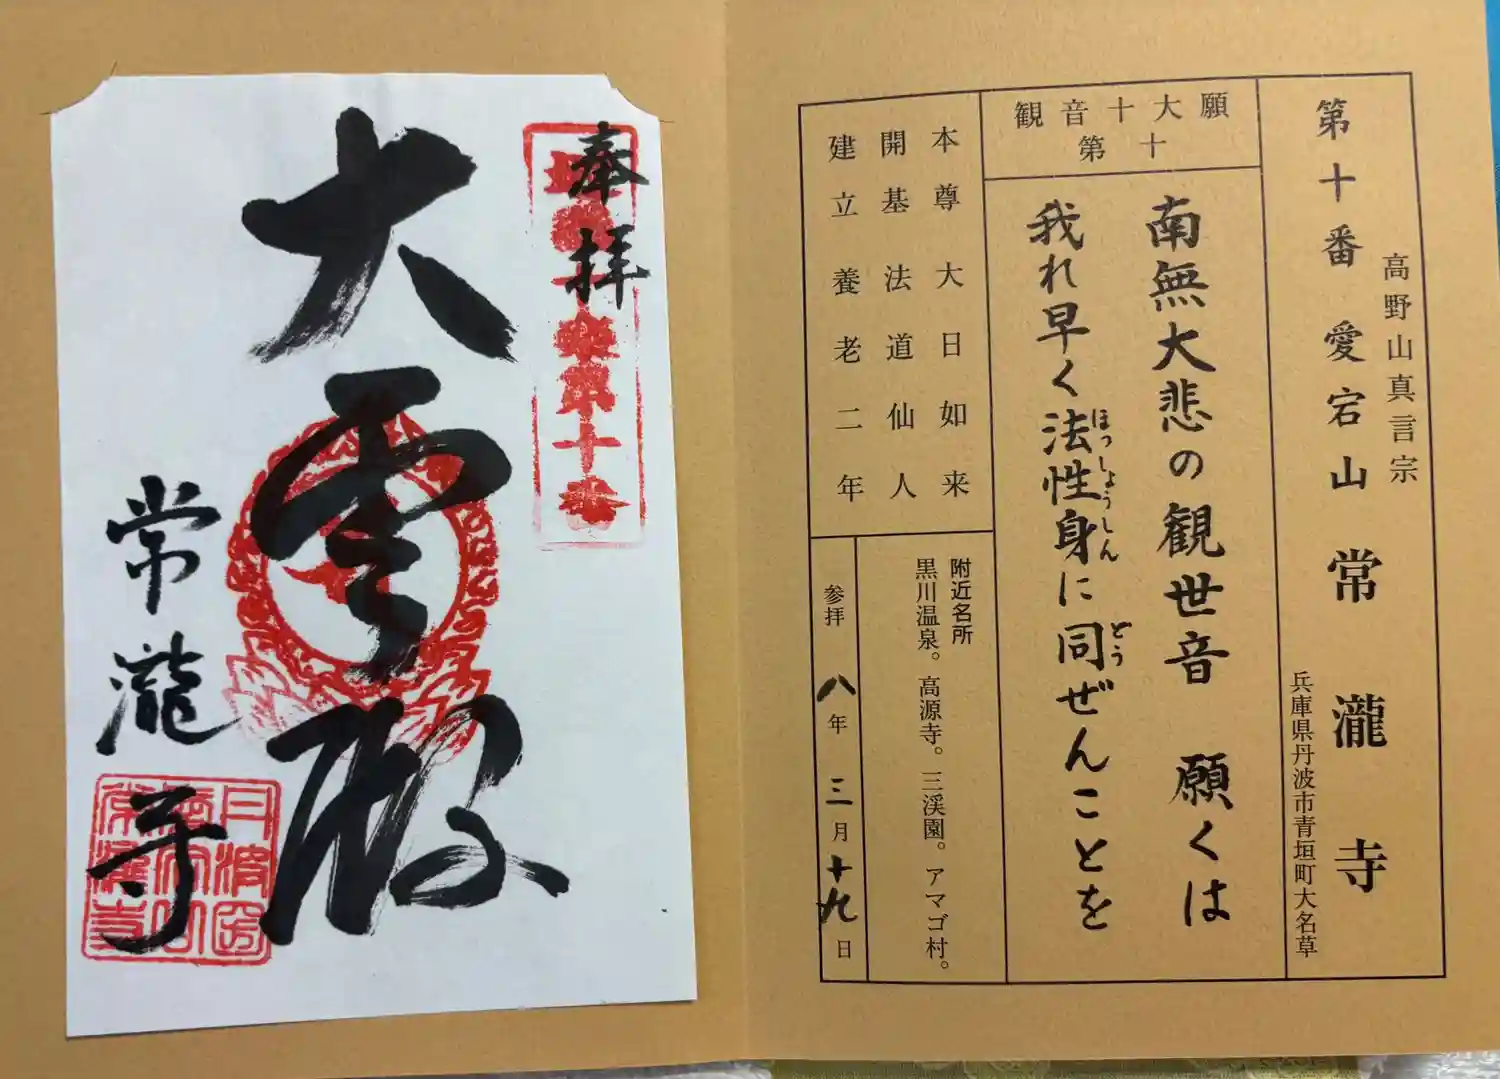 第十番 愛宕山 常瀧寺
高野山真言宗
兵庫県丹波市青垣町大名草
観音十大願
第十
南無大悲の観世音 願くは
我れ早く法性身に同ぜんことを
ほっしょうしん
どう
本尊 大日如来
開基 法道仙人
建立 養老二年
附近名所
黒川温泉。高源寺。三渓園。アマゴ村。
参拝 八年 三月十九日
奉拝
第十番
大雲殿
常瀧寺